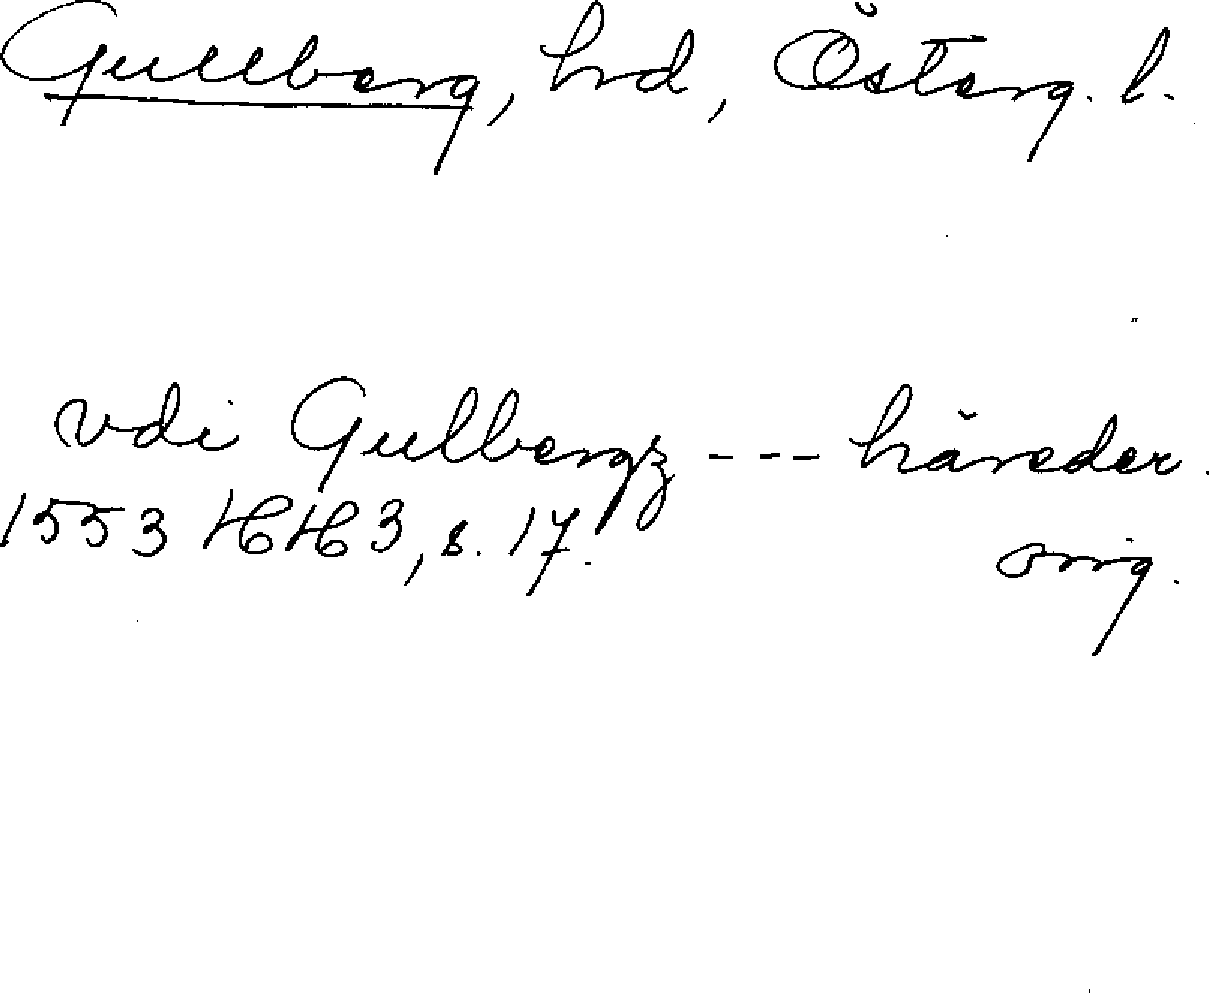 Gullberg, hd, Österg. l.
vdi Gulbergz --- häreder.
1553 HH 3, s. 17.
orig.